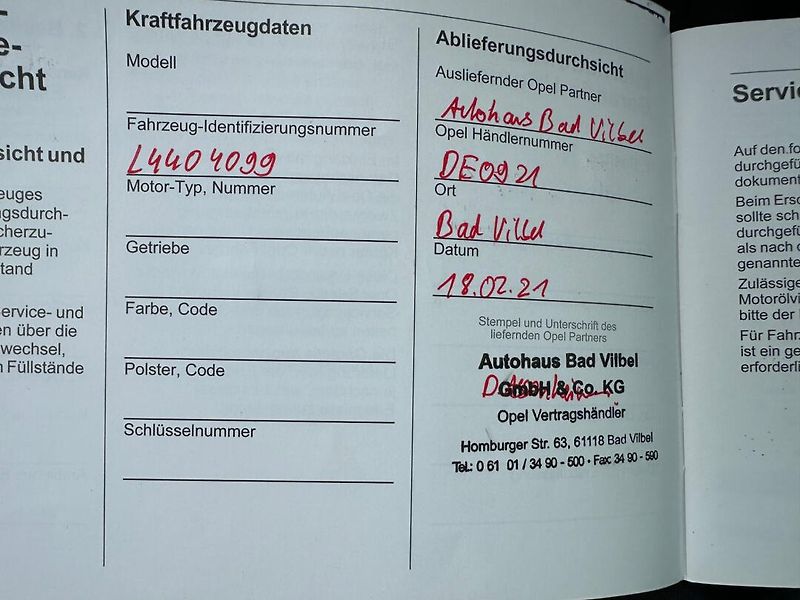 e-
cht
sicht und
euges
ngsdurch-
cherzu-
rzeug in
stand
ervice- und
en über die
wechsel,
n Füllstände
Kraftfahrzeugdaten
Modell
Fahrzeug-Identifizierungsnummer
L4404099
Motor-Typ, Nummer
Getriebe
Farbe, Code
Polster, Code
Schlüsselnummer
Ablieferungsdurchsicht
Ausliefernder Opel Partner
Autohaus Bad Vilbel
Opel Händlernummer
DE0921
Ort
Bad Vilbel
Datum
18.02.21
Stempel und Unterschrift des
liefernden Opel Partners
Autohaus Bad Vilbel
GmbH & Co. KG
Opel Vertragshändler
Homburger Str. 63, 61118 Bad Vilbel
Tel.: 0 61 01 / 34 90 - 500 • Fax: 34 90 - 590
Servic
Auf den fo
durchgefü
dokument
Beim Ersc
sollte sch
durchgefü
als nach d
genannte
Zulässige
Motorölvi
bitte der
Für Fahrz
ist ein ge
erforderli